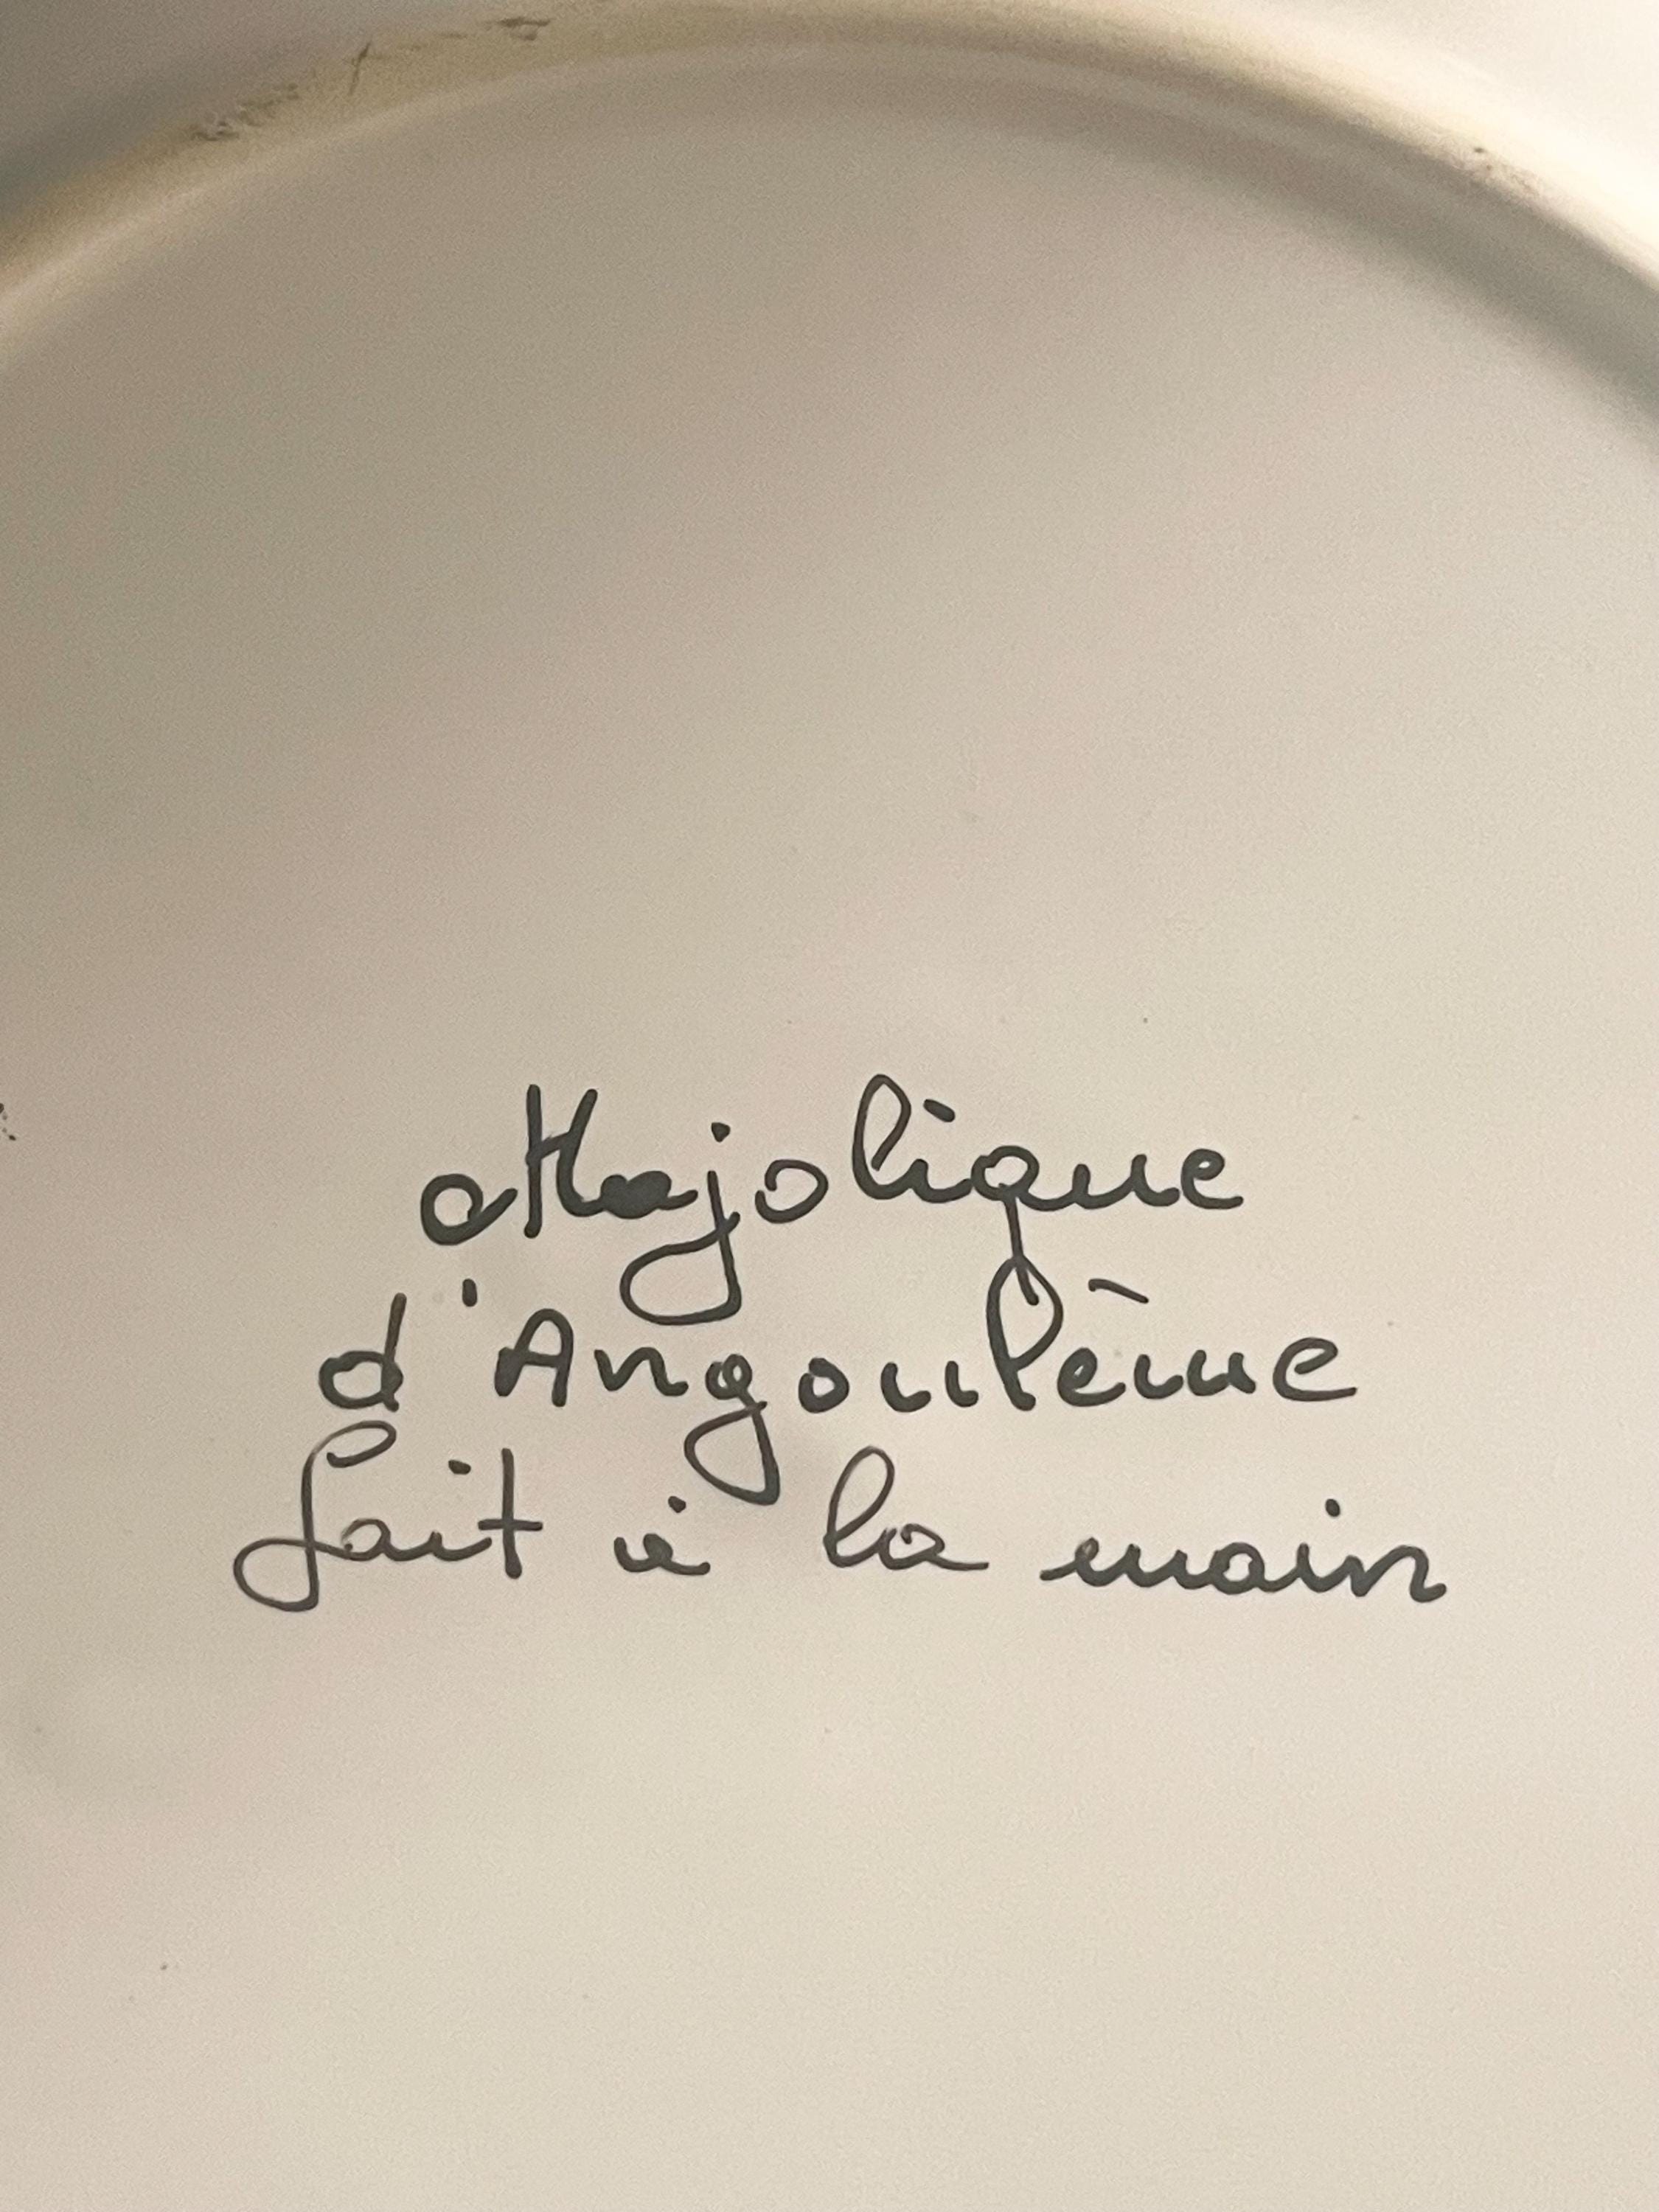 Majolique
d'Angoulême
fait à la main